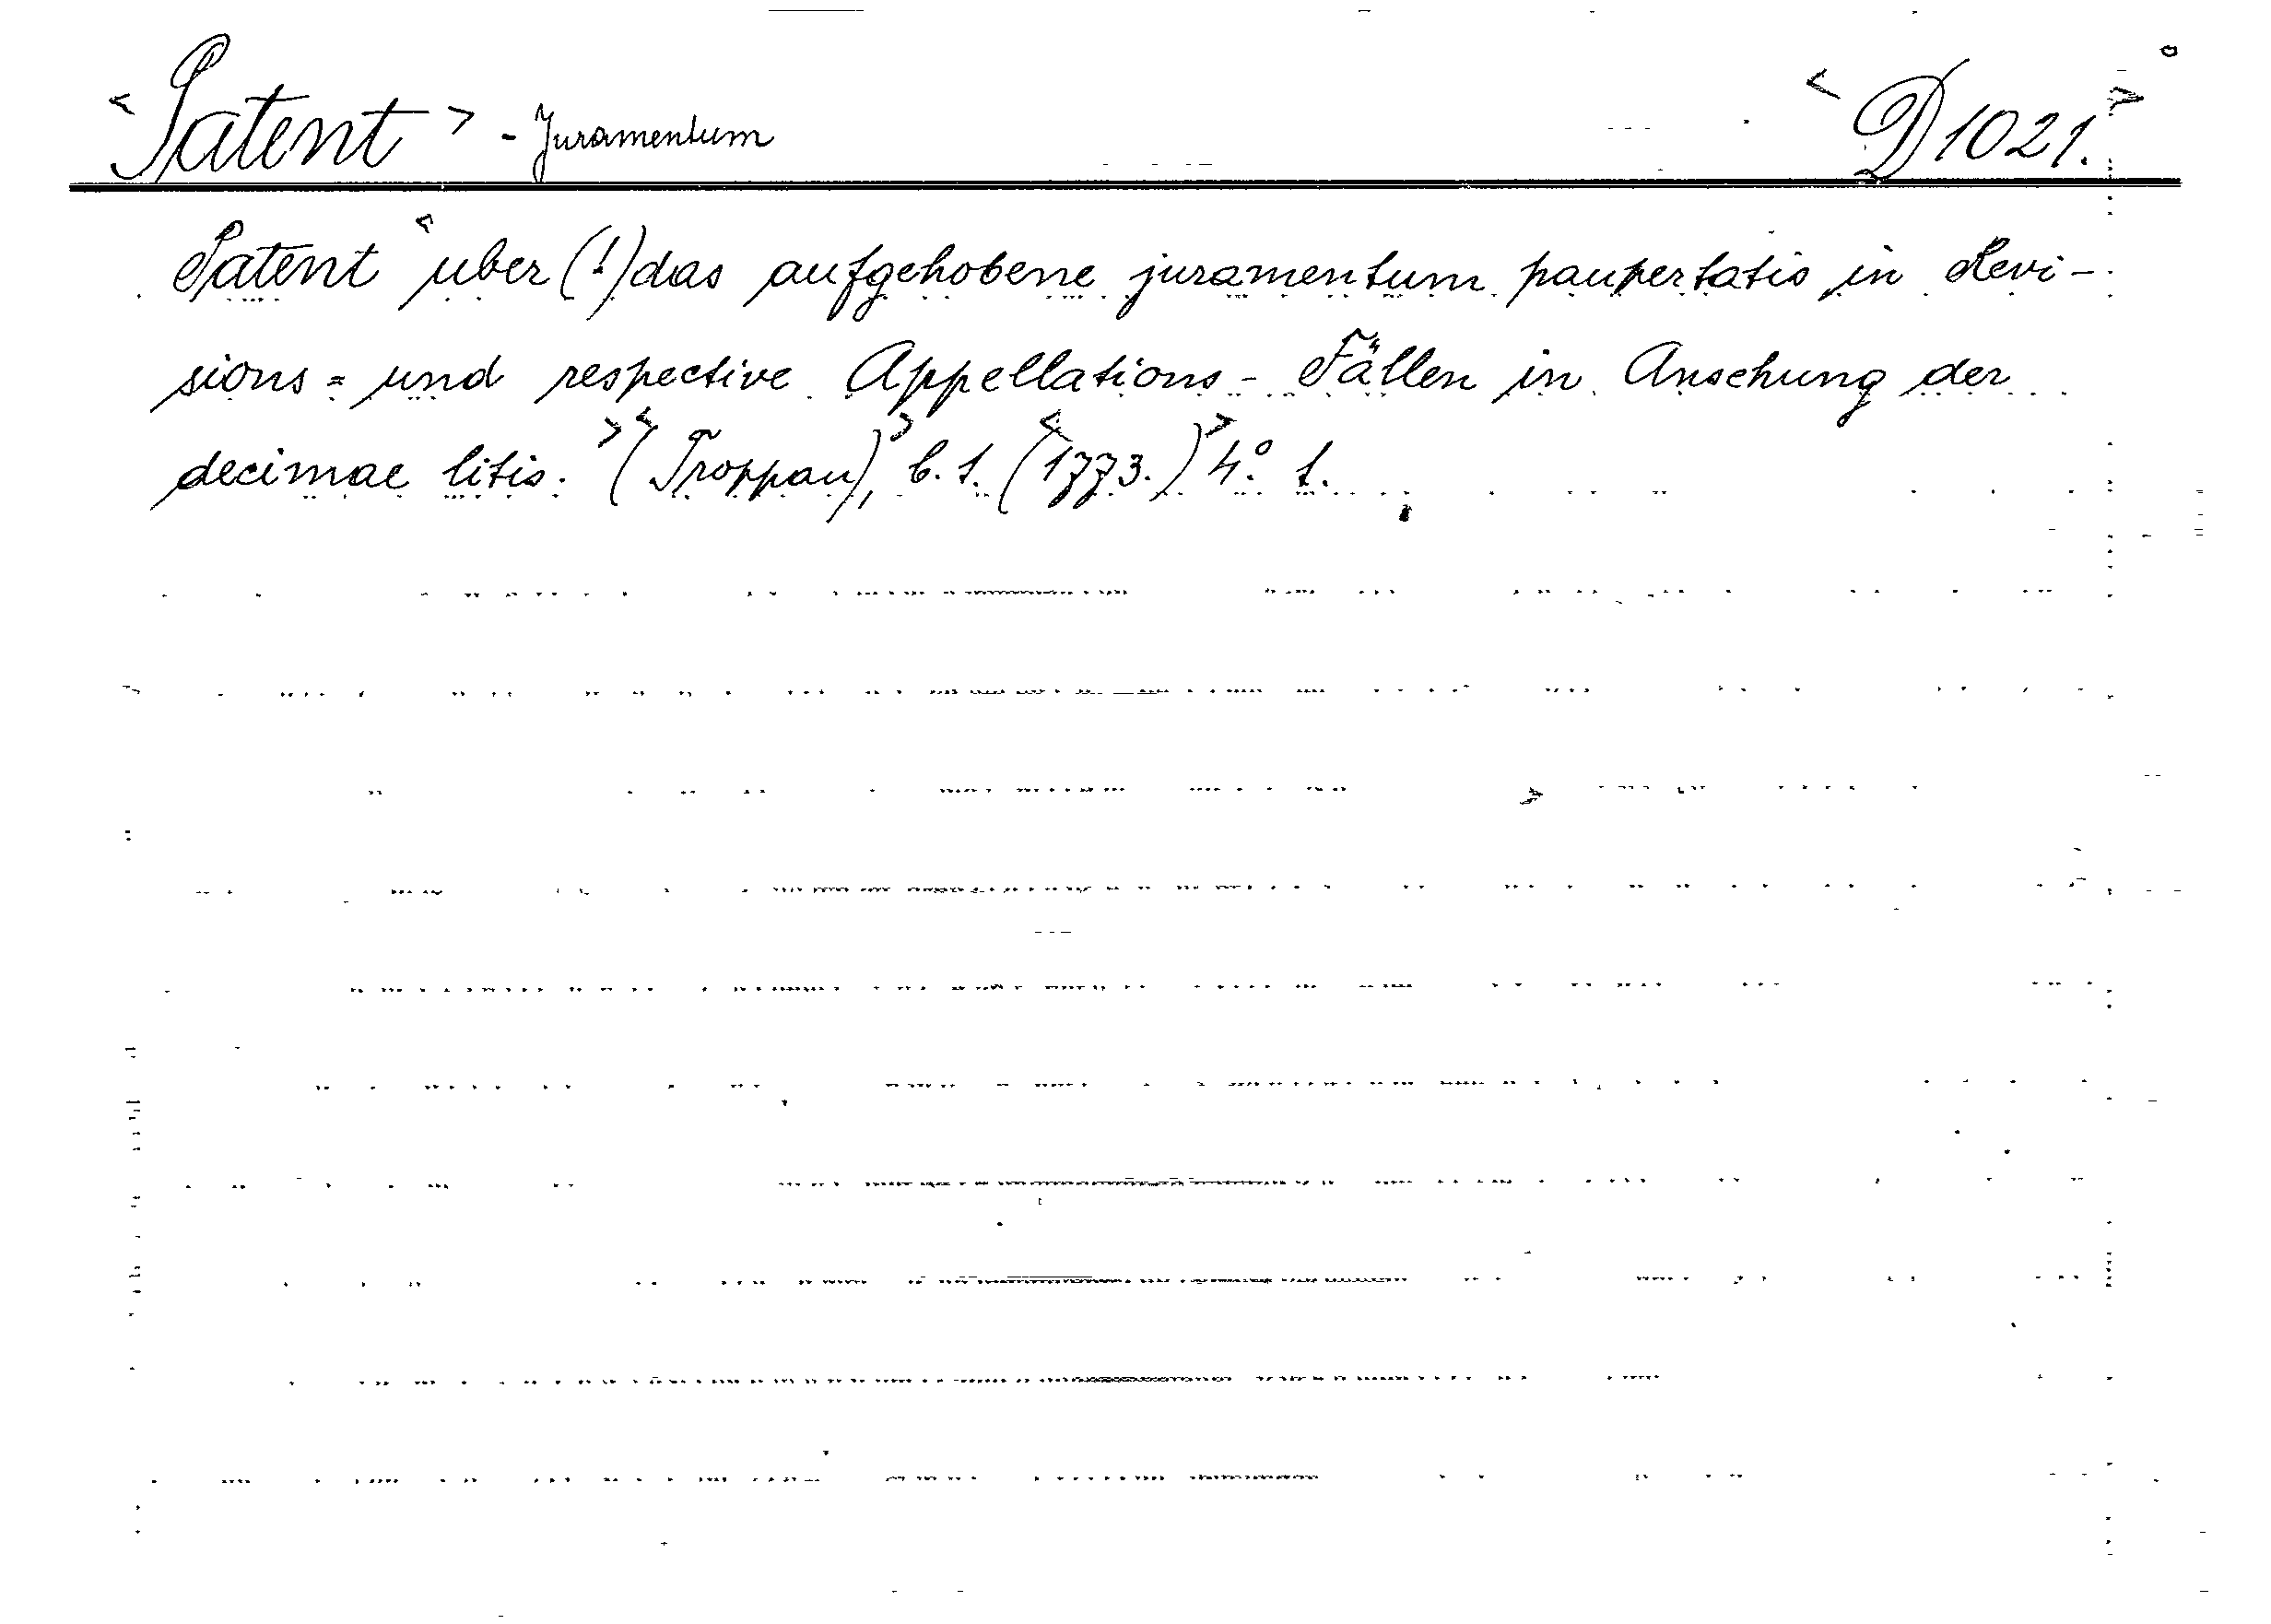 <Patent> - Juramentum <D 1021.>
Patent <uber (!) das aufgehobene juramentum paupertatis in Revi-
sions = und respective Appellations - Fällen in Ansehung der
decimae litis. > <(Troppau),> b. t. (<1773.)> 4.° 1.